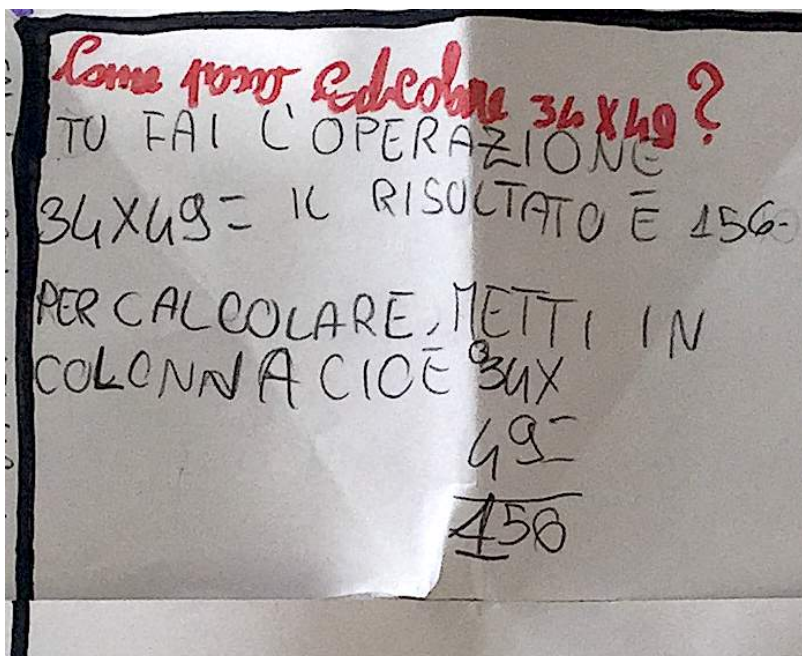 Come posso calcolare 34x49?
TU FAI L'OPERAZIONE
34X49= IL RISULTATO È 156.
PER CALCOLARE, METTI IN
COLONNA CIOÈ 34X
49=
156